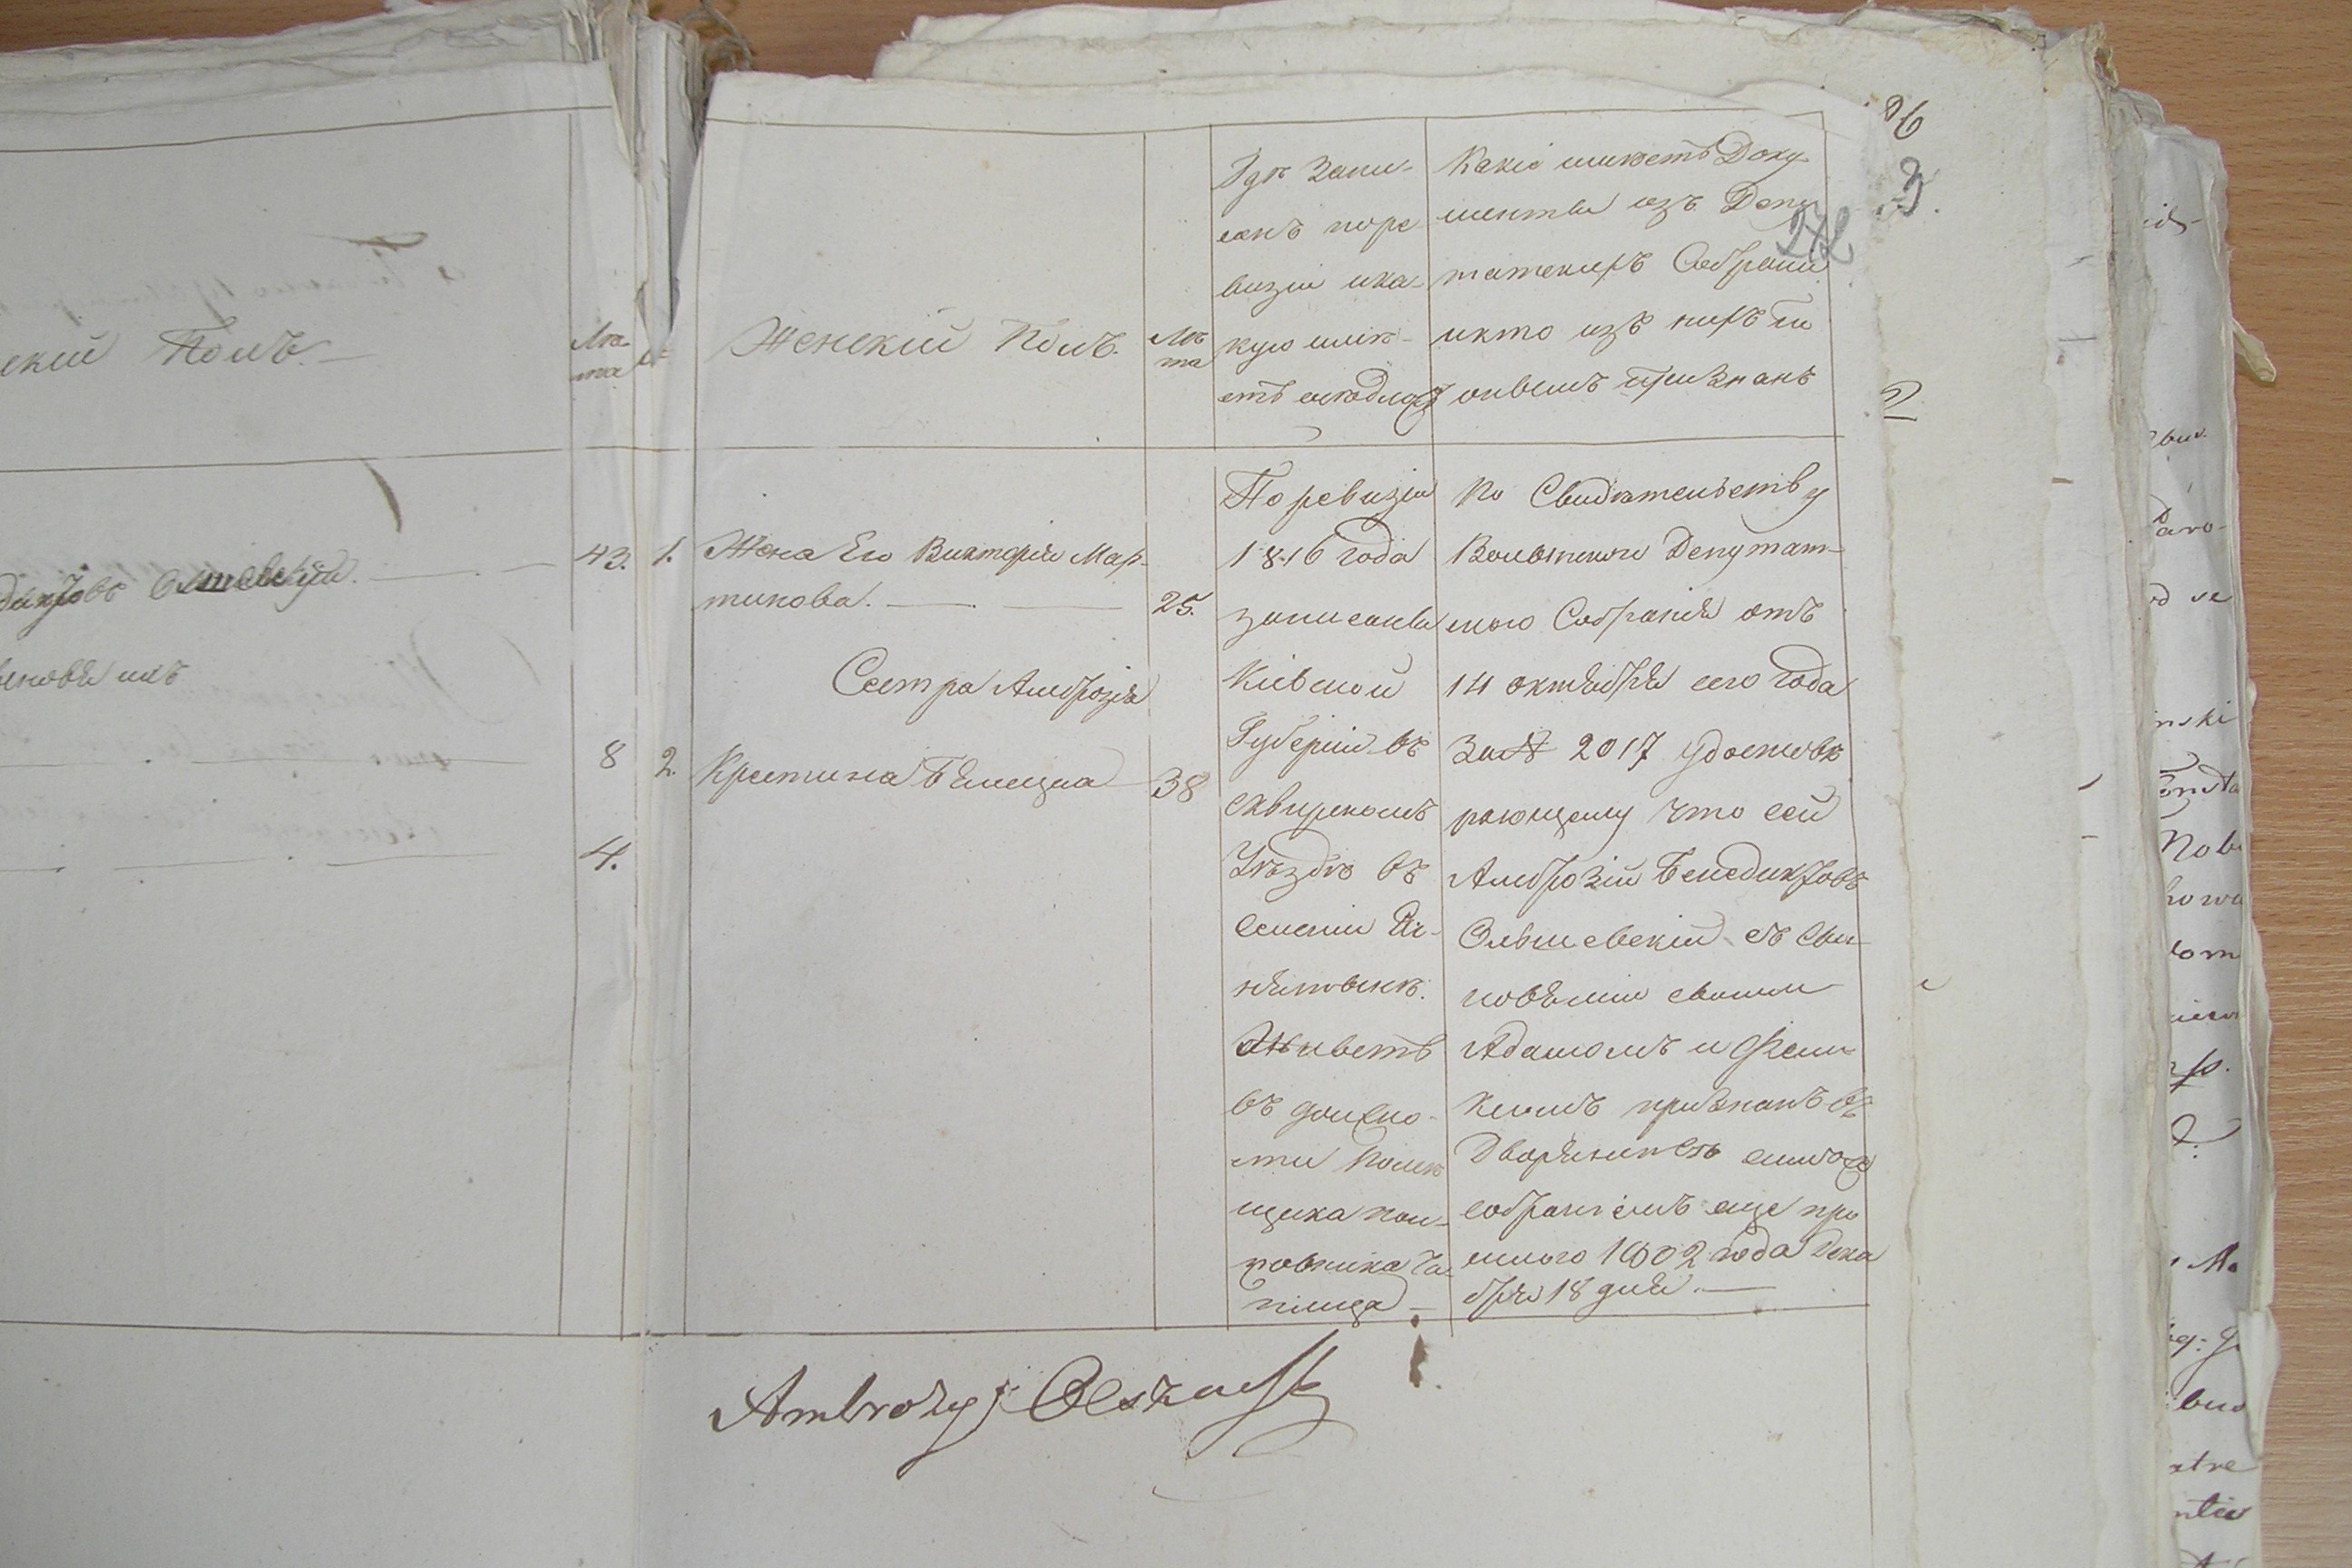 скій Полъ.
Лѣ-
та
Женскій Полъ.
Лѣ
та
Гдѣ Запи-
санъ поре
визіи ика-
кую имѣ-
етъ оседлость
Какіе имѣетъ Доку
менты изъ Депу
татскихъ Собраній
икто изъ нихъ по
онымъ признанъ
6
3.
272
43.
1. Жена Его Викторія Мар-
тинова. 25.
Сестра Амброзія
8
2. Кристина Бѣлецка 38
4.
новья ихъ
По ревизіи
1816 года
записаны
Кіевской
Губерніи въ
Сквирскомъ
Уѣздѣ въ
селеніи
Живетъ
въ
сти Помѣ
щика пол-
ковника
По Свидѣтельству
Волынскаго Депутат-
скаго Собранія отъ
14 октября сего года
за № 2017 удостовѣ
ряющему что сей
Амброзій Бенедиктовъ
Ольшевскій съ Сы-
новьями своими
Адамомъ и Фели
ксомъ признанъ въ
Дворянствѣ симъ
собраніемъ еще про
шлого 1802 года Дека
бря 18 дня.
Ambroży Olszewsk